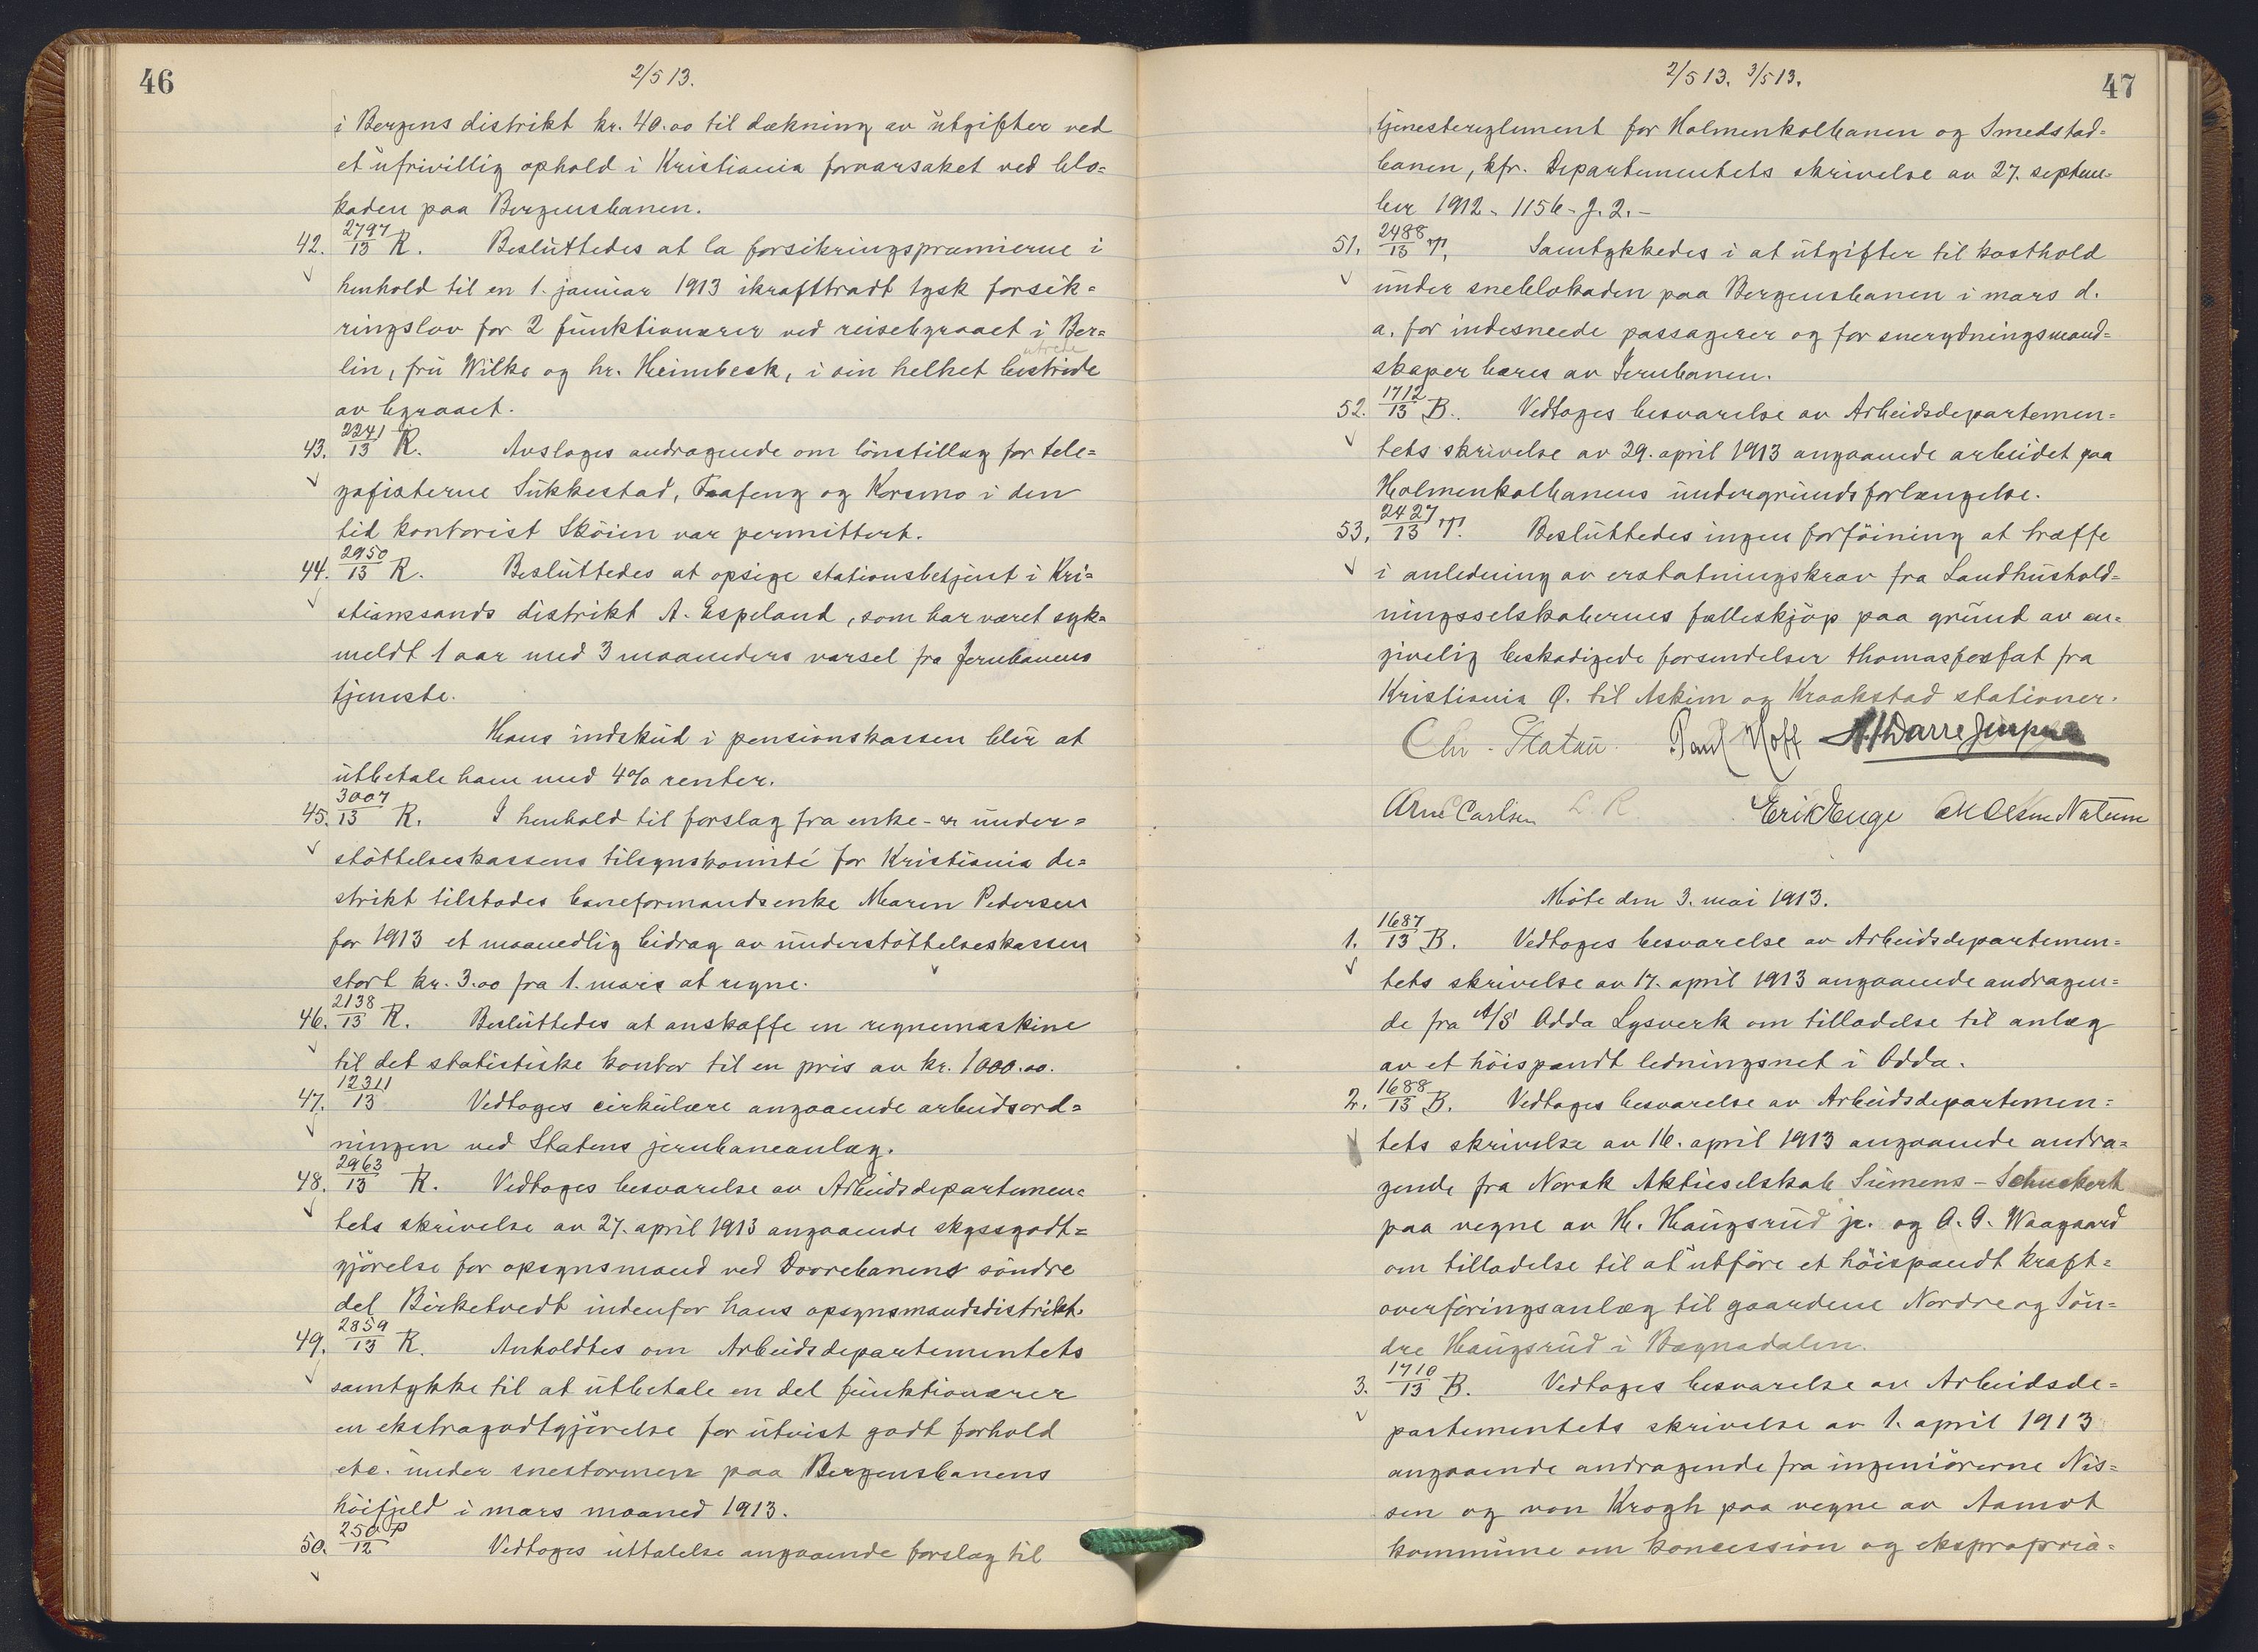 46
2/5 13.
i Bergens distrikt kr. 40.00 til dækning av utgifter ved
et ufrivillig ophold i Kristiania foraarsaket ved blo=
kaden paa Bergensbanen.
42. 2797/13 R. Besluttedes at la forsikringspræmierne i
henhold til en 1. januar 1913 ikrafttraadt tysk forsik=
ringslov for 2 funktionærer ved reisebyraaet i Ber=
utrede
lin, fru Wilke og hr. Heimbeck, i sin helhet bestride
av byraaet.
43. 2241/13 R. Avsloges andragende om lönstillæg for tele=
grafisterne Sukkestad, Faafeng og Korsmo i den
tid kontorist Sköien var permittert.
44. 2950/13 R. Besluttedes at opsige stationsbetjent i Kri=
stiansands distrikt A. Espeland, som har været syk=
meldt 1 aar med 3 maaneders varsel fra Jernbanens
tjeneste.
Hans indskud i pensionskassen blir at
utbetale ham med 4% renter.
45. 3007/13 R. I henhold til forslag fra enke- er under=
støttelseskassens tilsynskomité for Kristiania de=
strikt tilstodes baneformandsenke Maren Pedersen
for 1913 et maanedlig bidrag av understøttelseskassen
stort kr. 3.00 fra 1. mars at regne.
46. 2138/13 R. Besluttedes at anskaffe en regnemaskine
til det statistiske kontor til en pris av kr. 1000.00.
47. 12311/13 Vedtoges cirkulære angaaende arbeidsord=
ningen ved Statens jernbaneanlæg.
48. 2963/13 R. Vedtoges besvarelse av Arbeidsdepartemen=
tets skrivelse av 27. april 1913 angaaende skyssgodt=
gjörelse for opsynsmand ved Dovrebanens söndre
del Birketvedt indenfor hans opsynsmandsdistrikt.
49. 2859/13 R. Anholdtes om Arbeidsdepartementets
samtykke til at utbetale en del funktionærer
en ekstragodtgjörelse for utvist godt forhold
etc. under snestormen paa Bergensbanens
höifjeld i mars maaned 1913.
50. 250 P/12 Vedtoges uttalelse angaaende forslag til
47
2/5 13. 3/5 13.
tjenestereglement for Holmenkolbanen og Smedstad=
banen, kfr. Departementets skrivelse av 27. septem=
ber 1912 - 1156 - J. 2. -
51. 2488/13 T. Samtykkedes i at utgifter til kosthold
under sneblokaden paa Bergensbanen i mars d.
a. for indesneede passagerer og for snerydningsmand=
skaper bæres av Jernbanen.
52. 1712/13 B. Vedtoges besvarelse av Arbeidsdepartemen=
tets skrivelse av 29. april 1913 angaaende arbeidet paa
Holmenkolbanens undergrundsforlængelse.
53. 2427/13 T. Besluttedes ingen forföining at træffe
i anledning av erstatningskrav fra Landhushold=
ningsselskabernes fælleskjöp paa grund av an=
givelig beskadigede forsendelser thomasfosfat fra
Kristiania Ø. til Askim og Kraakstad stationer.
Chr. Platou. Paul Hoff
Arne Carlsen L. R. Erik Enge
Möte den 3. mai 1913.
1. 1687/13 B. Vedtoges besvarelse av Arbeidsdepartemen=
tets skrivelse av 17. april 1913 angaaende andragen=
de fra A/S Odda Lysverk om tilladelse til anlæg
av et höispændt ledningsnet i Odda.
2. 1688/13 B. Vedtoges besvarelse av Arbeidsdepartemen=
tets skrivelse av 16. april 1913 angaaende andra=
gende fra Norsk Aktieselskab Siemens - Schuckert
paa vegne av H. Haugsrud jr. og O. G. Waagaard
om tilladelse til at utföre et höispændt kraft=
overföringsanlæg til gaardene Nordre og Sön=
dre Haugsrud i Bægnadalen.
3. 1710/13 B. Vedtoges besvarelse av Arbeidsde=
partementets skrivelse av 1. april 1913
angaaende andragende fra ingeniörerne Nis=
sen og von Krogh paa vegne av Aamot
kommune om koncession og ekspropria=